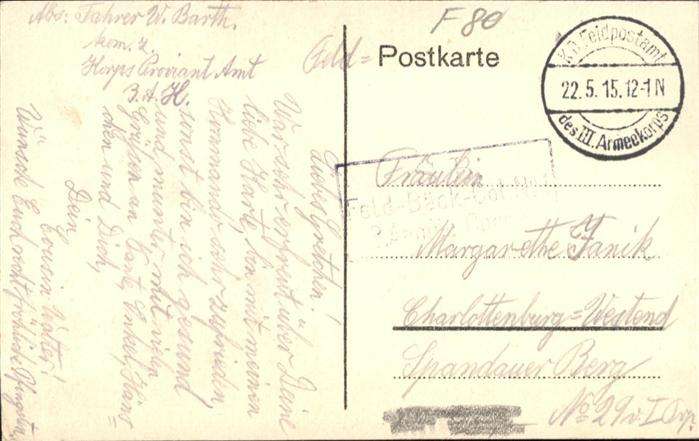 Abs: Fahrer W. Barth.
kom. z.
Korps Proviant Amt
3. A. K.
F 80
Feld=Postkarte
K.D. Feldpostamt
22.5.15.12-1 N
des III. Armeekorps
Feld-Bäck-Kol.
Fräulein
Margarethe Janik
Charlottenburg=Westend
Spandauer Berg
No 29 I
Liebes Gretchen!
War sehr erfreut über Deine
liebe Karte, bin mit meinem
Kommando sehr zufrieden,
sonst bin ich gesund
und munter, mit vielen
Grüßen an Tante, Onkel, Häns=
chen und Dich,
Dein
Cousin Walter!
Wünsche Euch recht fröhliche Pfingsten,